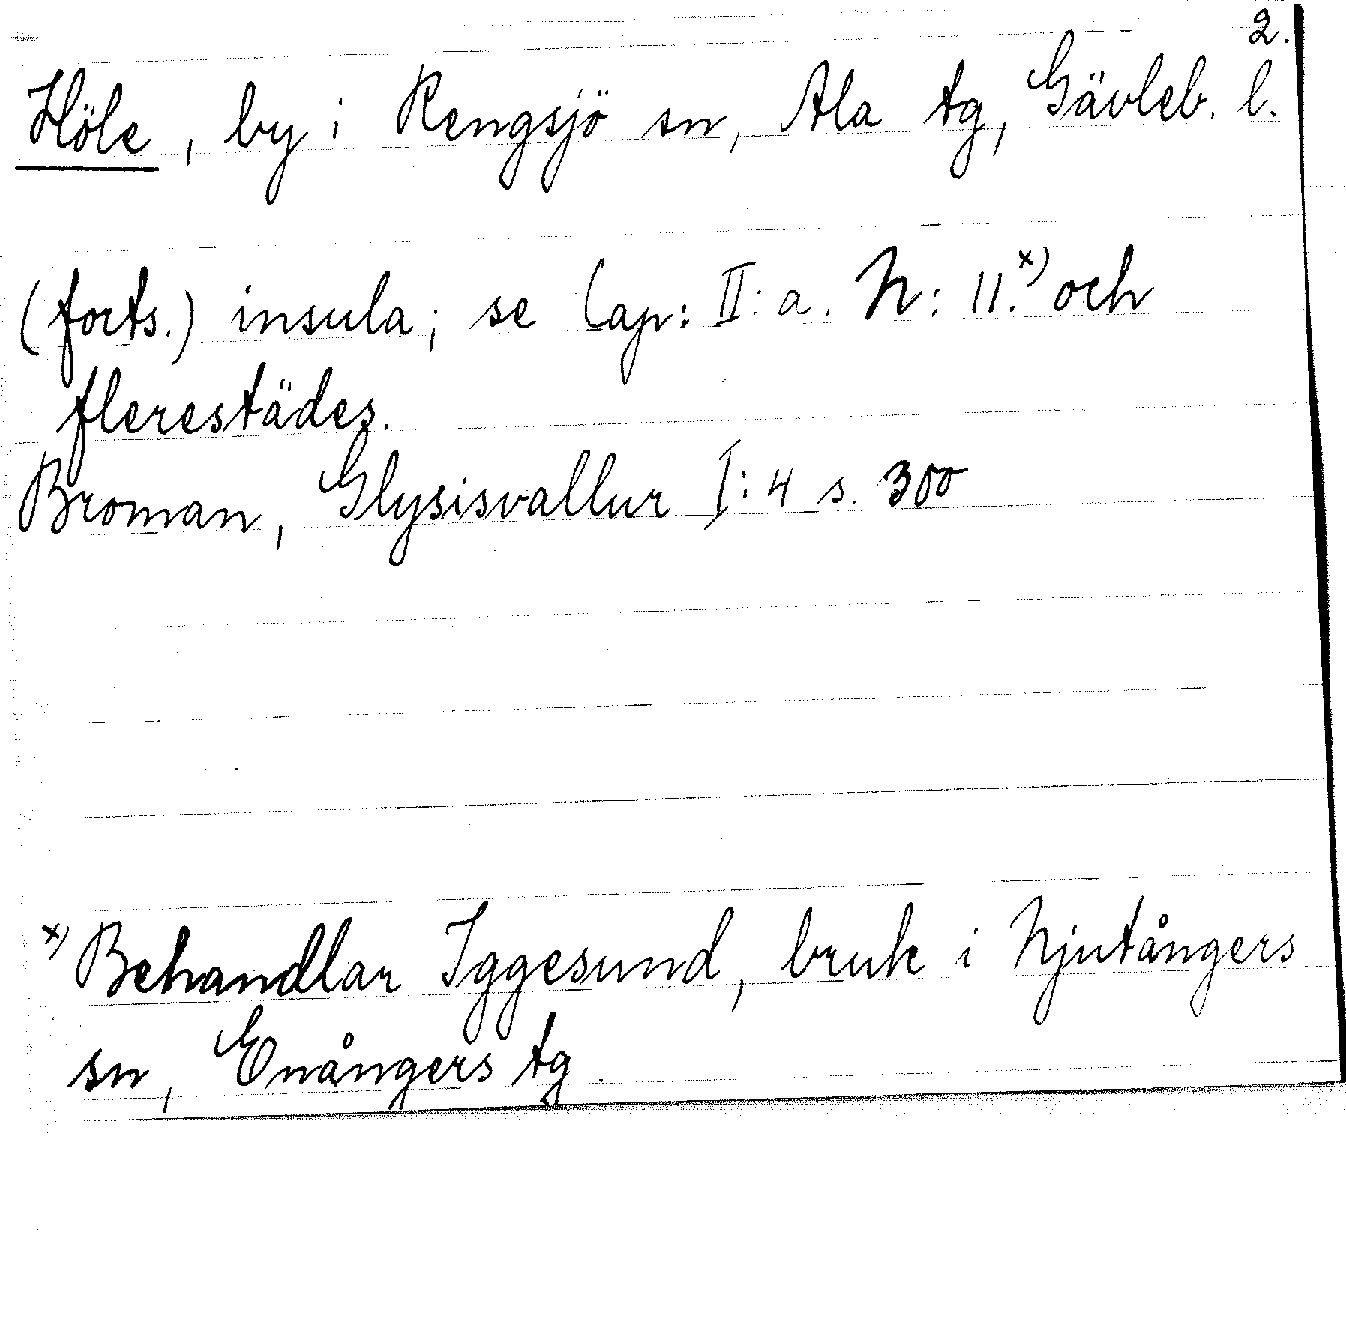 2.
Höle, by i Rengsjö sn, Ala tg, Gävleb. l.
(forts.) insula; se Cap: II: a. N: 11.x) och
flerestädes.
Broman, Glysisvallur I: 4 s. 300
x) Behandlar Iggesund, bruk i Njutångers
sn, Enångers tg.